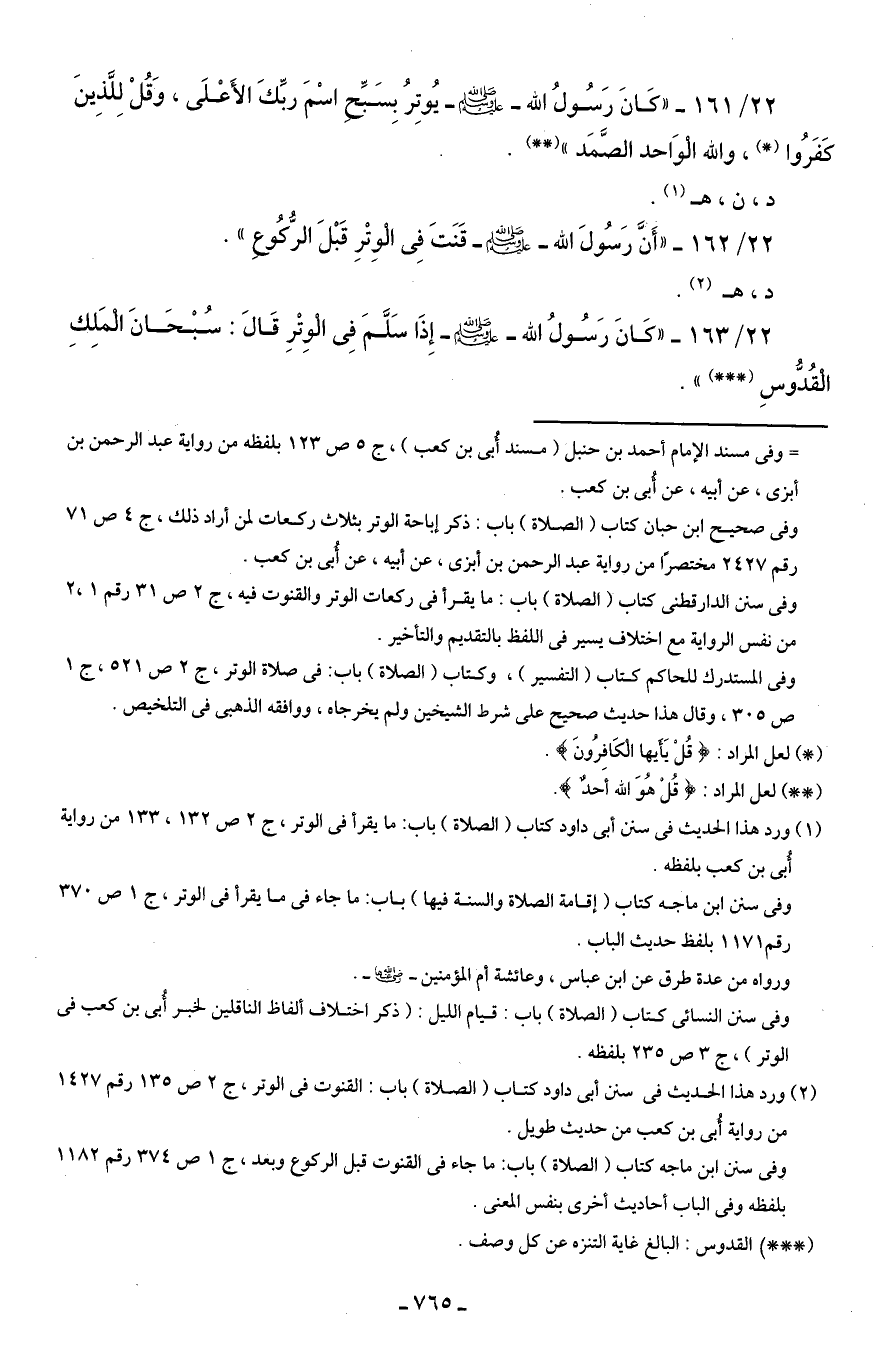 ٢٢/ ١٦١ ـ «كَـانَ رَسُـولُ الله ـ ﷺ ـ يُوتِرُ بِسَـبِّحِ اسْمَ رَبِّكَ الأَعْـلَى ، وَقُلْ لِلَّذِينَ
كَفَرُوا (*) ، والله الْوَاحد الصَّمَد »(**) .
د ، ن ، هـ (١) .
٢٢/ ١٦٢ ـ «أَنَّ رَسُولَ الله ـ ﷺ ـ قَنَتَ فِى الْوِتْرِ قَبْلَ الرُّكُوعِ » .
د ، هـ (٢) .
٢٢/ ١٦٣ ـ «كَـانَ رَسُـولُ الله ـ ﷺ ـ إِذَا سَلَّـمَ فِى الْوِتْرِ قَـالَ : سُبْـحَـانَ الْمَلِكِ
الْقُدُّوسِ (***) » .
= وفى مسند الإمام أحمد بن حنبل ( مـسند أُبى بن كعب ) ، ج ٥ ص ١٢٣ بلفظه من رواية عبد الرحمن بن
أبزى ، عن أبيه ، عن أُبى بن كعب .
وفى صحيـح ابن حبان كتاب ( الصـلاة ) باب : ذكر إباحة الوتر بثلاث ركـعات لمن أراد ذلك ، ج ٤ ص ٧١
رقم ٢٤٢٧ مختصرًا من رواية عبد الرحمن بن أبزى ، عن أبيه ، عن أُبى بن كعب .
وفى سنن الدارقطنى كتاب ( الصلاة ) باب : ما يقـرأ فى ركعات الوتر والقنوت فيه ، ج ٢ ص ٣١ رقم ١ ،٢
من نفس الرواية مع اختلاف يسير فى اللفظ بالتقديم والتأخير .
وفى المستدرك للحاكم كـتاب ( التفسير ) ، وكـتاب ( الصلاة ) باب: فى صلاة الوتر ، ج ٢ ص ٥٢١ ، ج ١
ص ٣٠٥ ، وقال هذا حديث صحيح على شرط الشيخين ولم يخرجاه ، ووافقه الذهبى فى التلخيص .
(*) لعل المراد : ﴿ قُلْ يَأَيها الْكَافِرُونَ ﴾ .
(**) لعل المراد : ﴿ قُلْ هُوَ الله أحدٌ ﴾.
(١) ورد هذا الحديث فى سنن أبى داود كتاب ( الصلاة ) باب: ما يقرأ فى الوتر ، ج ٢ ص ١٣٢ ، ١٣٣ من رواية
أُبى بن كعب بلفظه .
وفى سنن ابن ماجـه كتاب ( إقـامة الصلاة والسنـة فيها ) بـاب: ما جاء فى مـا يقرأ فى الوتر ، ج ١ ص ٣٧٠
رقم١١٧١ بلفظ حديث الباب .
ورواه من عدة طرق عن ابن عباس ، وعائشة أم المؤمنين ـ رضي الله عنهم ـ .
وفى سنن النسائى كـتاب ( الصلاة ) باب : قـيام الليل : ( ذكر اختـلاف ألفاظ الناقلين لخبـر أُبى بن كعب فى
الوتر ) ، ج ٣ ص ٢٣٥ بلفظه .
(٢) ورد هذا الحـديث فى سنن أبى داود كتـاب ( الصـلاة ) باب : القنوت فى الوتر ، ج ٢ ص ١٣٥ رقم ١٤٢٧
من رواية أُبى بن كعب من حديث طويل .
وفى سنن ابن ماجه كتاب ( الصلاة ) باب: ما جاء فى القنوت قبل الركوع وبعد ، ج ١ ص ٣٧٤ رقم ١١٨٢
بلفظه وفى الباب أحاديث أخرى بنفس المعنى .
(***) القدوس : البالغ غاية التنزه عن كل وصف .
ـ ٧٦٥ ـ